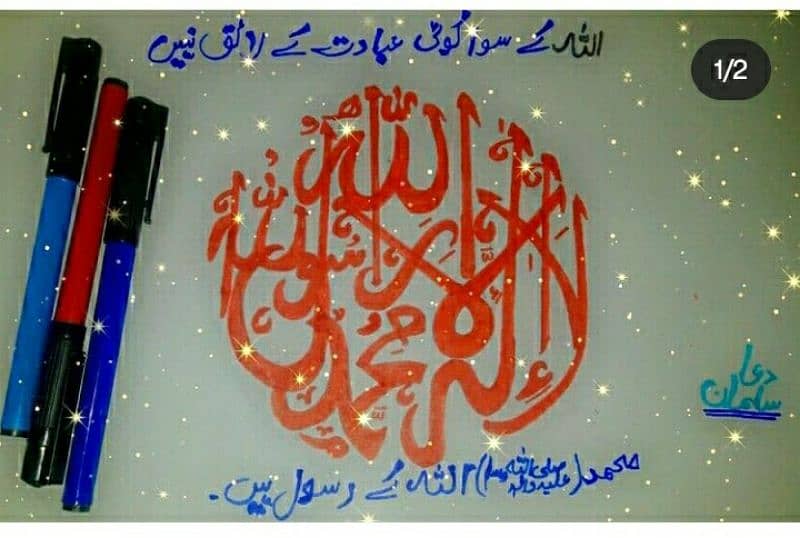 1/2
اللہ کے سوا کوئی عبادت کے لائق نہیں
لا إله إلا الله
محمد رسول الله
دعا
سلمان
محمد (صلی اللہ علیہ وآلہ وسلم) اللہ کے رسول ہیں۔